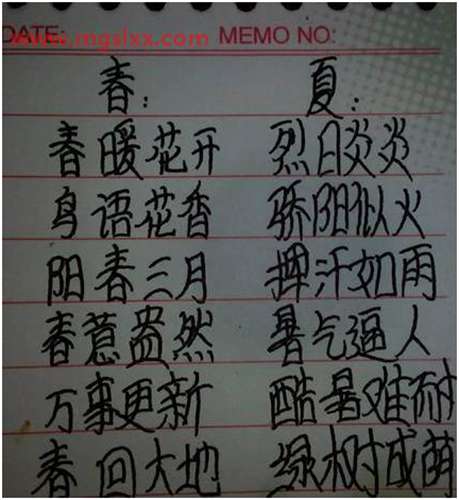 DATE: MEMO NO:
www.mgslxx.com
春: 夏:
春暖花开 烈日炎炎
鸟语花香 骄阳似火
阳春三月 挥汗如雨
春意盎然 暑气逼人
万事更新 酷暑难耐
春回大地 绿树成荫